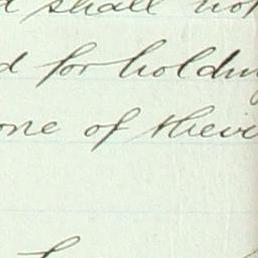 shall not
for holdin
one of their